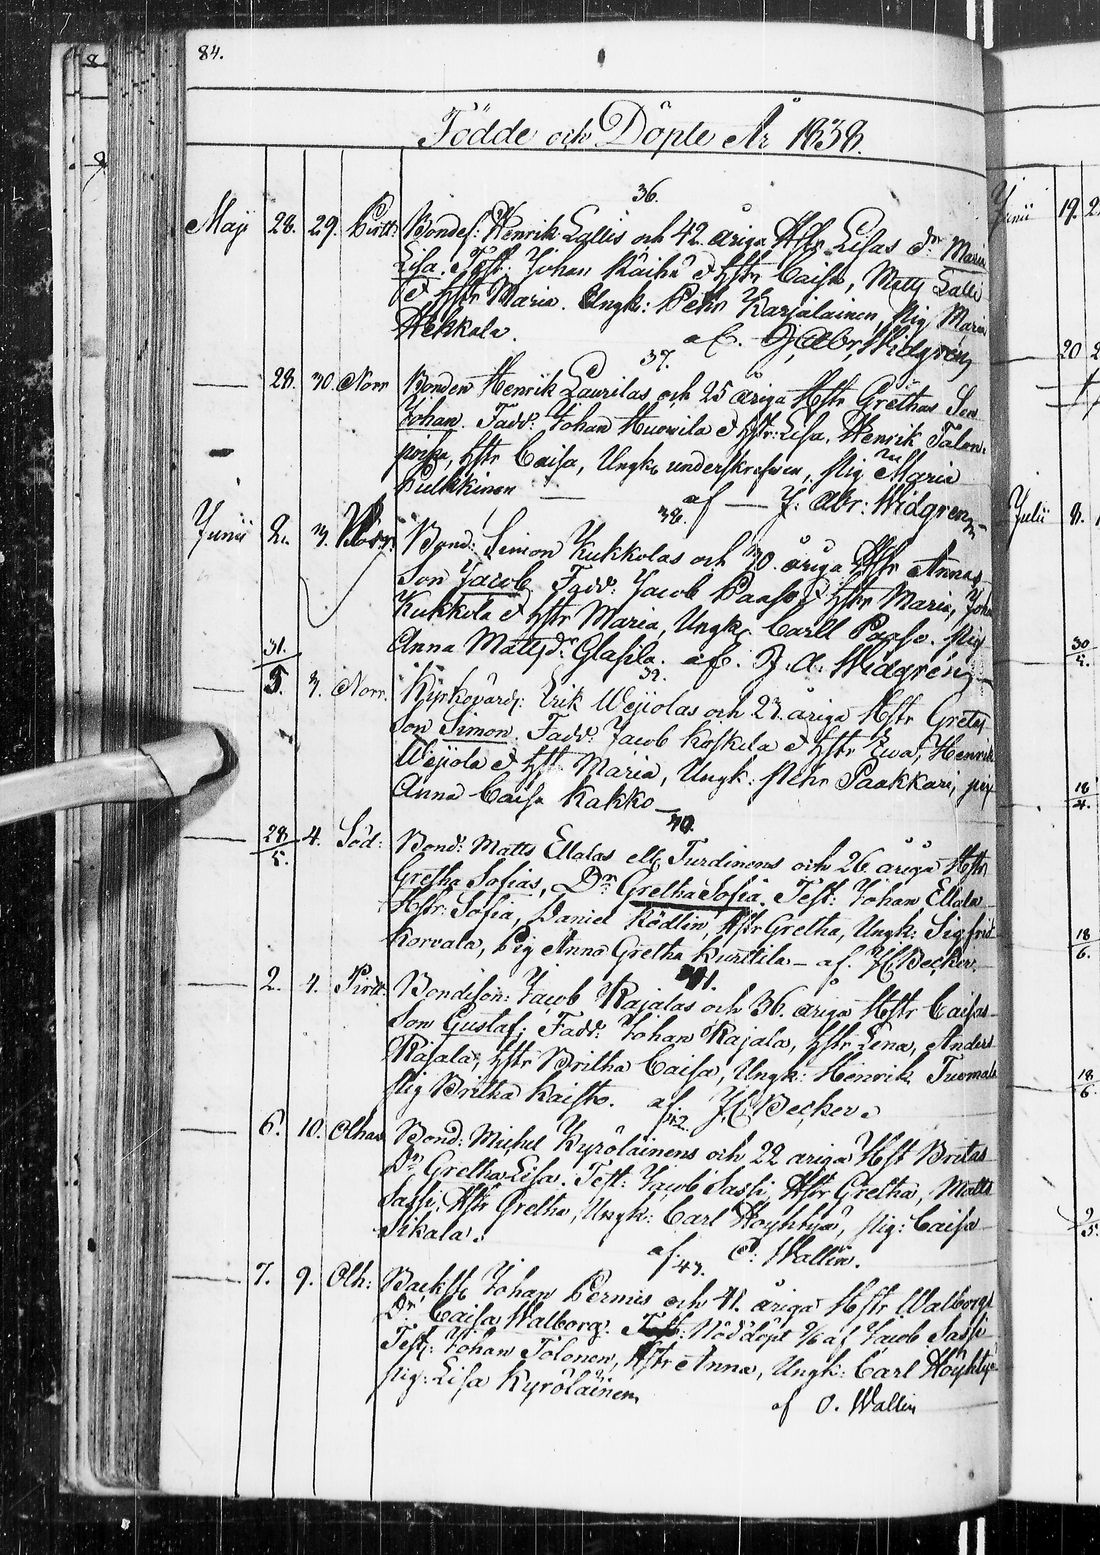 84.
Födde och Döpte År 1838.
36.
Maji 28. 29. Pirtt: Bondes: Henrik Lallis och 42 åriga Hstr Lisas dr Maria
Lisa. Test: Johan Räihä & hstr Caisa, Matts Lalli
& hstr Maria. Ungk: Pehr Karjalainen, Pig Maria
Hekkala. af J. Abr. Widgrén
37.
— 28. 30. Norr Bonden Henrik Laurilas och 25 åriga Hstr Grethas Son
Johan. Fadd: Johan Huowila & hstr: Lisa, Henrik Talon-
poika, hstr Caisa, Ungk underskrefven, Pig Maria
Pulkkinen — af — J. Abr: Widgren
38.
Junii 2. 3. Norr. Bond: Simon Kukkolas och 30. åriga Hstr Annas
Son Jacob, Fadd: Jacob Paaso & hstr Maria, Joh:
Kukkola & hstr Maria, Ungk Carll Paaso. Pig
Anna Mattsdr Glasila. af. J. A: Widgrén
39.
31.
5. 3. Norr. Kyrkovärd: Erik Wejjolas och 23. åriga Hstr Gretas
Son Simon. Fadd: Jacob Koskela & hstr Ewa, Henrik
Wejjola & hstr Maria, Ungk: Pehr Paakkari, pig
Anna Caisa Kakko —
40.
— 28/5. 4. Söd: Bond: Matts Ellalas ell. Turdinens och 26 åriga Hstr
Gretha Sofias, Dr. Gretha Sofia. Test: Johan Ellala
Hstr: Sofia, Daniel Rödlin, Hstr Gretha, Ungk: Sigfrid
Korvala, Pig Anna Gretha Kurttila — af. JC Becker
41.
— 2. 4. Pirtt Bondeson: Jacob Rajalas och 36. åriga Hstr Caisas
Son Gustaf; Fadd: Johan Rajala, hstr Lena, Anders
Rajala, hstr Britha Caisa, Ungk: Henrik Tuomala
Pig Britha Kaisto. af JC Becker.
42.
— 6. 10. Olhav Bond: Michel Kyröläinens och 22 åriga Hst Britas
Dr Gretha Lisa. Test: Jacob Sassi, Hstr Gretha, Matts
Sassi, Hstr Gretha, Ungk: Carl Höyhtyä, pig: Caisa
Sikala.
af C: Wallin.
43.
— 7. 9. Olh: Backst. Johan Permis och 41. åriga Hstr Walborgs
Dr Caisa Walborg. Nöddöpt 7/6 af Jacob Sassi
Test: Johan Tolonen, hstr Anna, Ungk: Carl Höyhtyä
pig: Lisa Kyröläinen
af O. Wallin
Junii 19.
20
Julii 8.
30/5.
18/4.
18/6.
18/6.
9/5.